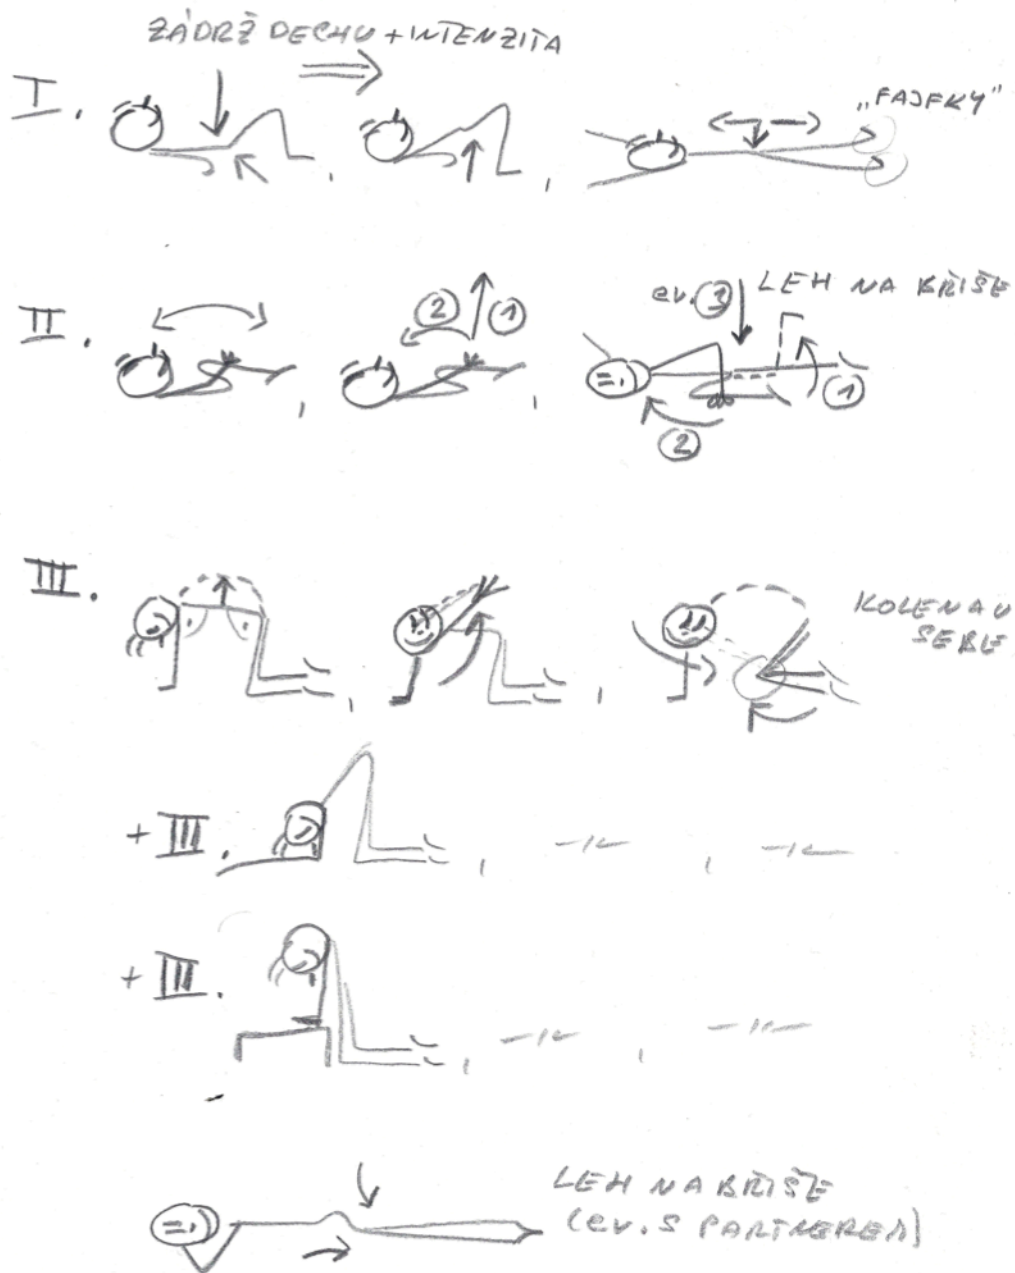 ZÁDRŽ DECHU + INTENZITA
I.
„FAJFKY"
II.
2 1
ev. 3 LEH NA BŘIŠE
1
2
III.
KOLENA U
SEBE
+ III.
+ III.
LEH NA BŘIŠE
(ev. S PARTNEREM)